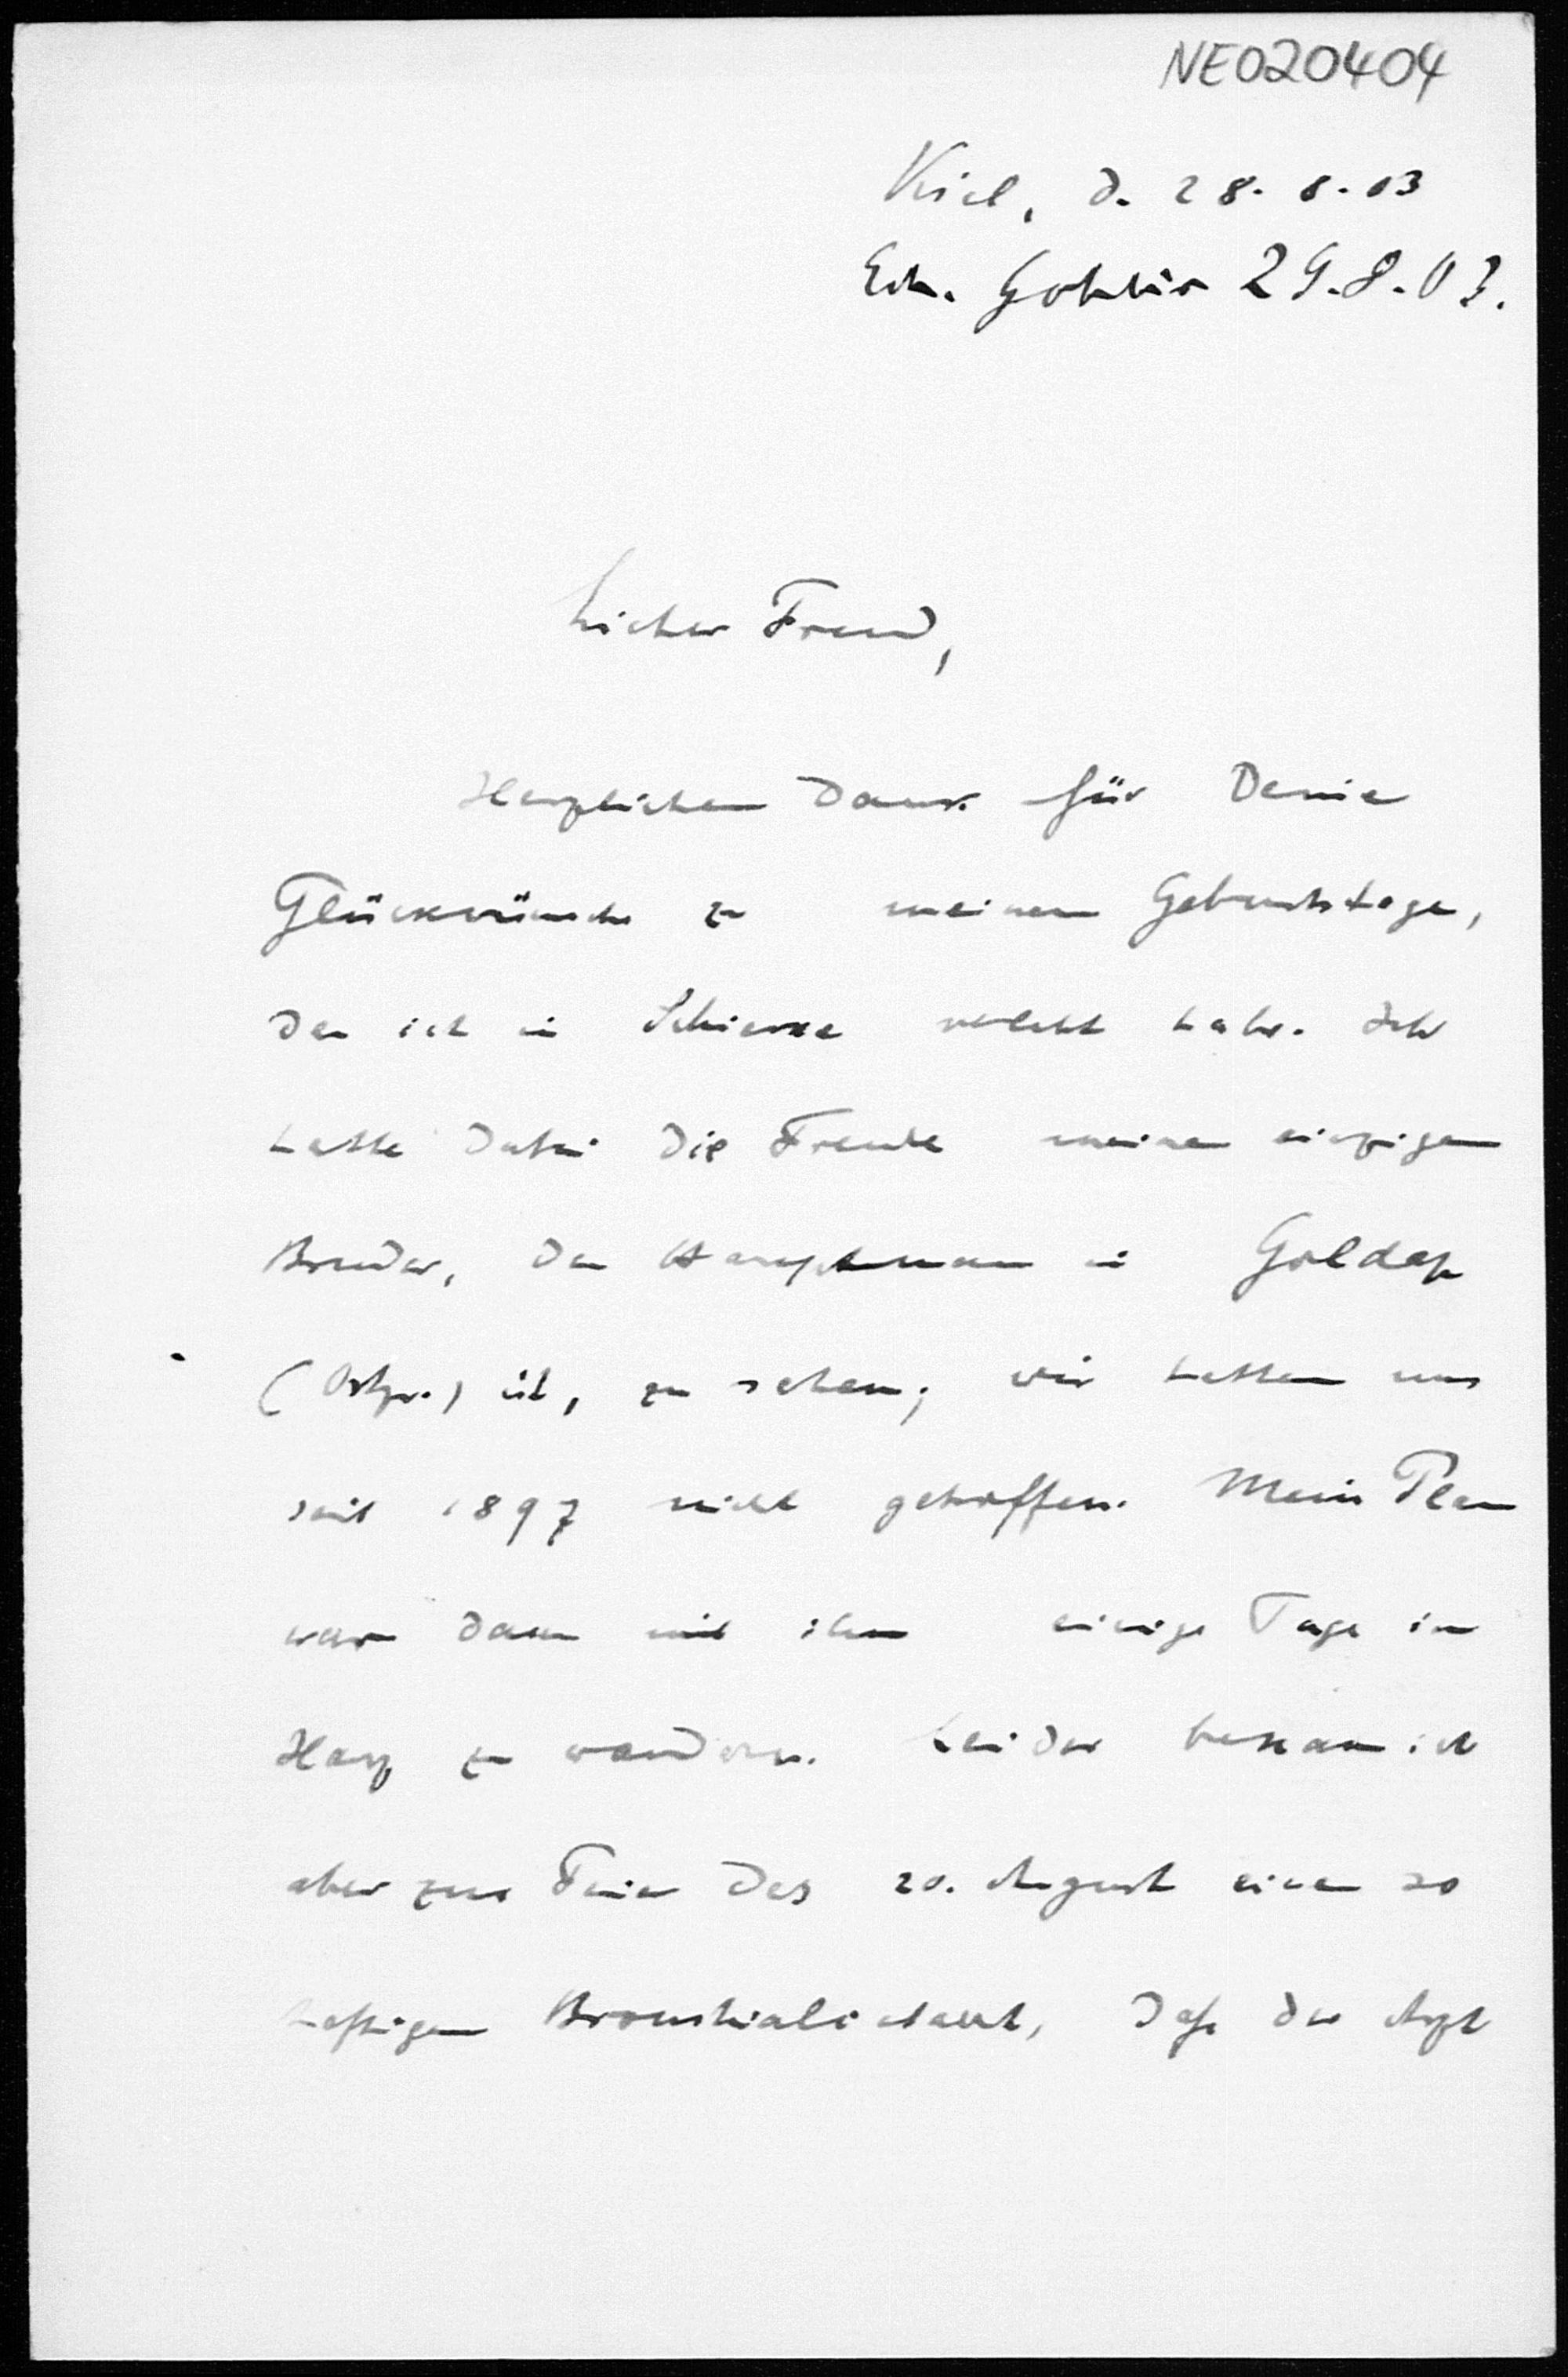 NE020404
Kiel, d. 28. 8. 03
Erh. Gohlis 29.8.03.
Lieber Freund,
Herzlichen Dank für Deine
Glückwünsche zu meinem Geburtstage,
den ich in Schierke verlebt habe. Ich
hatte dabei die Freude meinen einzigen
Bruder, der Hauptmann in Goldap
(Ostpr.) ist, zu sehen; wir hatten uns
seit 1897 nicht getroffen. Mein Plan
war dann mit ihm einige Tage im
Harz zu wandern. Leider bekam ich
aber zur Feier des 20. August einen so
heftigen Bronchialkatarrh, daß der Arzt